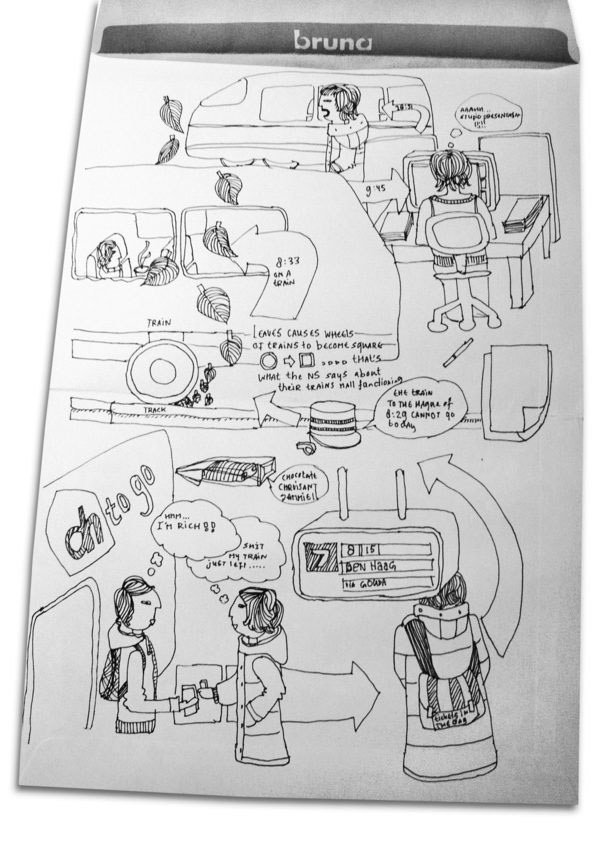 bruna
AAAHH...
STUPID PRESENTATION
!!!!
9:45
8:33
ON A
TRAIN
TRAIN
LEAVES CAUSES WHEELS
OF TRAINS TO BECOME SQUARE
.... THAT'S
WHAT THE NS SAYS ABOUT
THEIR TRAINS MALL functioning
THE TRAIN
TO THE HAGUE OF
8:29 CANNOT GO
today
TRACK
ah to go
CHOCOLATE
HMM...
I'M RICH !!
SHIT
MY TRAIN
JUST LEFT .....
7
8:15
DEN HAAG
VIA GOUDA
tickets in
THE BAG